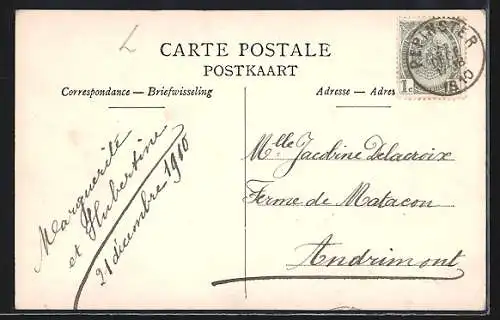 CARTE POSTALE
POSTKAART
Correspondance — Briefwisseling
Adresse — Adres
PEPINSTER
1910
1c
Marguerite
et Hubertine
21 décembre 1910
Mlle Jacobine Delacroix
Ferme de Matacon
Andrimont